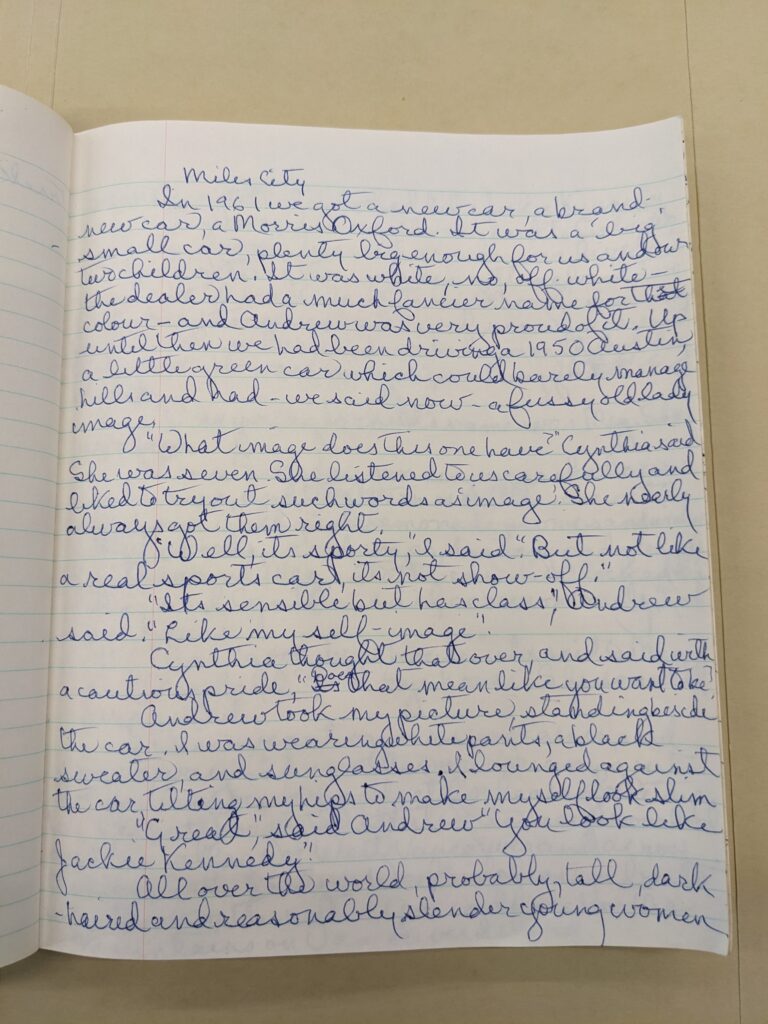 Miles City
In 1961 we got a new car, a brand-
new car, a Morris Oxford. It was a big,
small car, plenty big enough for us and our
two children. It was white, no, off-white -
the dealer had a much fancier name for that
colour - and Andrew was very proud of it. Up
until then we had been driving a 1950 Austin,
a little green car which could barely manage
hills and had - we said now - a fussy old lady
image.
"What image does this one have?" Cynthia said
She was seven. She listened to us carefully and
liked to try out such words as 'image'. She nearly
always got them right.
"Well, its sporty," I said. "But not like
a real sports car, its not show-off."
"Its sensible but has class", Andrew
said. "Like my self-image".
Cynthia thought that over, and said with
a cautious pride, "Does that mean like you want to be"
Andrew took my picture, standing beside
the car. I was wearing white pants, a black
sweater, and sunglasses. I lounged against
the car, tilting my hips to make myself look slim
"Great", said Andrew "You look like
Jackie Kennedy".
All over the world, probably, tall, dark
-haired and reasonably slender young women